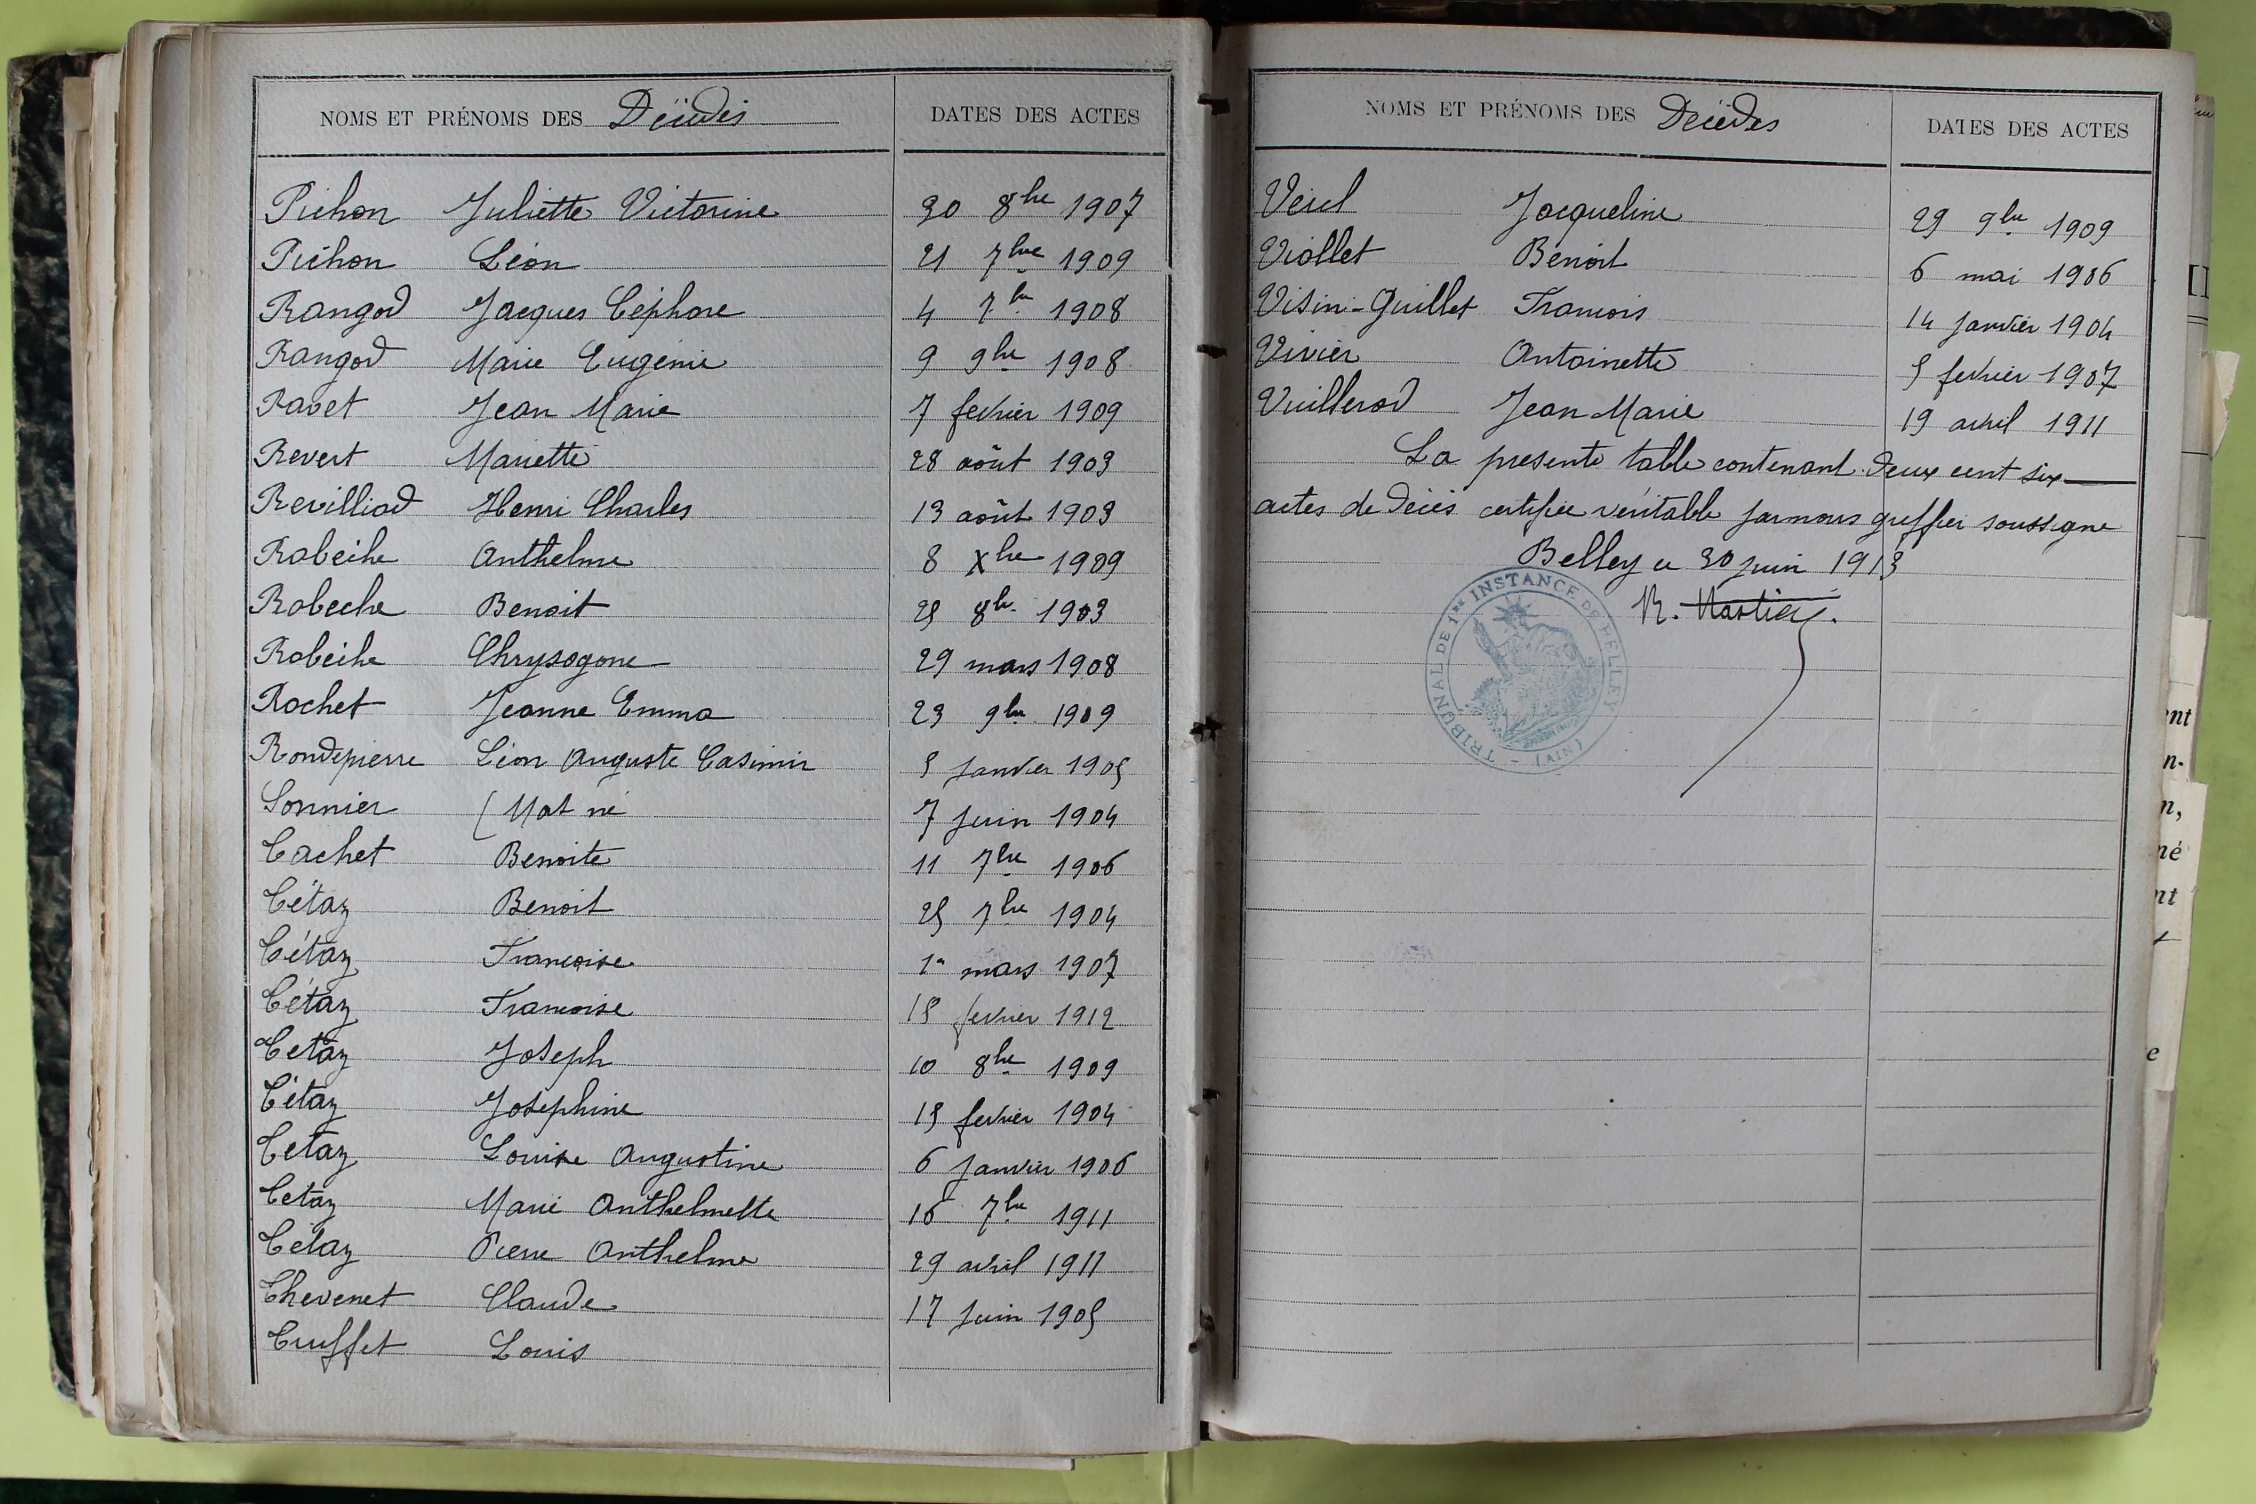 NOMS ET PRÉNOMS DES Décédés DATES DES ACTES
Pichon Juliette Victorine 30 8bre 1907
Pichon Léon 21 7bre 1909
Rangod Jacques Céphore 4 7bre 1908
Rangod Marie Eugénie 9 9bre 1908
Ravet Jean Marie 7 fevrier 1909
Revert Mariette 28 août 1903
Revilliod Henri Charles 13 août 1903
Robeche Anthelme 8 Xbre 1909
Robeche Benoit 25 8bre 1903
Robeche Chrysogone 29 mars 1908
Rochet Jeanne Emma 23 9bre 1909
Rondepierre Léon Auguste Casimir 5 Janvier 1905
Sonnier (Mort né 7 Juin 1904
Tachet Benoite 11 7bre 1906
Tétaz Benoit 25 7bre 1904
Tétaz Francoise 1er mars 1907
Tétaz Francoise 15 fevrier 1912
Tetaz Joseph 10 8bre 1909
Tétaz Josephine 15 fevrier 1904
Tetaz Louise Augustine 6 Janvier 1906
Tetaz Marie Anthelmette 16 7bre 1911
Tétaz Pierre Anthelme 29 avril 1911
Thevenet Claude 17 Juin 1905
Truffet Louis
NOMS ET PRÉNOMS DES Décédés DATES DES ACTES
Jacqueline 29 9bre 1909
Viollet Benoit 6 mai 1906
Visin-Guillet Francois 14 Janvier 1904
Vivier Antoinette 5 fevrier 1907
Vuillerod Jean Marie 19 avril 1911
La presente table contenant deux cent six
actes de décès certifiée véritable par nous greffier soussigne
Belley le 30 juin 1913
TRIBUNAL DE 1re INSTANCE DE BELLEY (AIN)